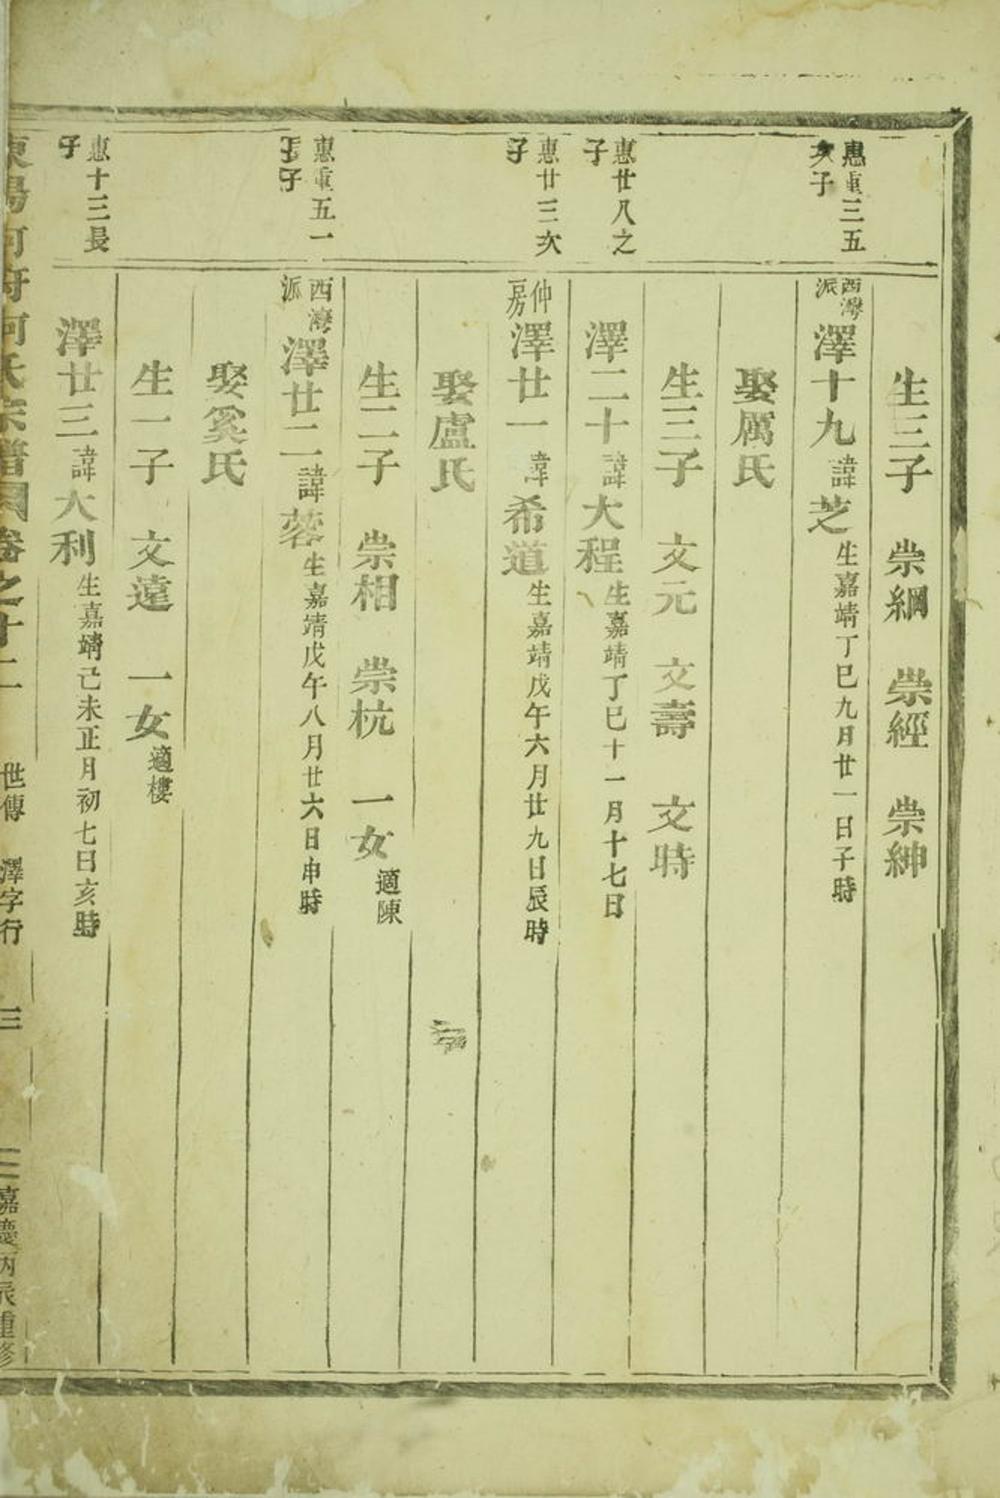 生三子 崇綱 崇經 崇紳
惠重三五次子
西灣派 澤十九 諱芝 生嘉靖丁巳九月廿一日子時
娶厲氏
生三子 文元 文壽 文時
惠廿八之子
澤二十 諱大程 生嘉靖丁巳十一月十七日
惠廿三次子
仲房 澤廿一 諱希道 生嘉靖戊午六月廿九日辰時
娶盧氏
生二子 崇相 崇杭 一女 適陳
惠重五一子
西灣派 澤廿二 諱蓉 生嘉靖戊午八月廿六日申時
娶奚氏
生一子 文遠 一女 適樓
惠十三長子
澤廿三 諱大利 生嘉靖己未正月初七日亥時
東陽何府何氏宗譜 卷之十二 世傳 澤字行 三 嘉慶丙辰重修